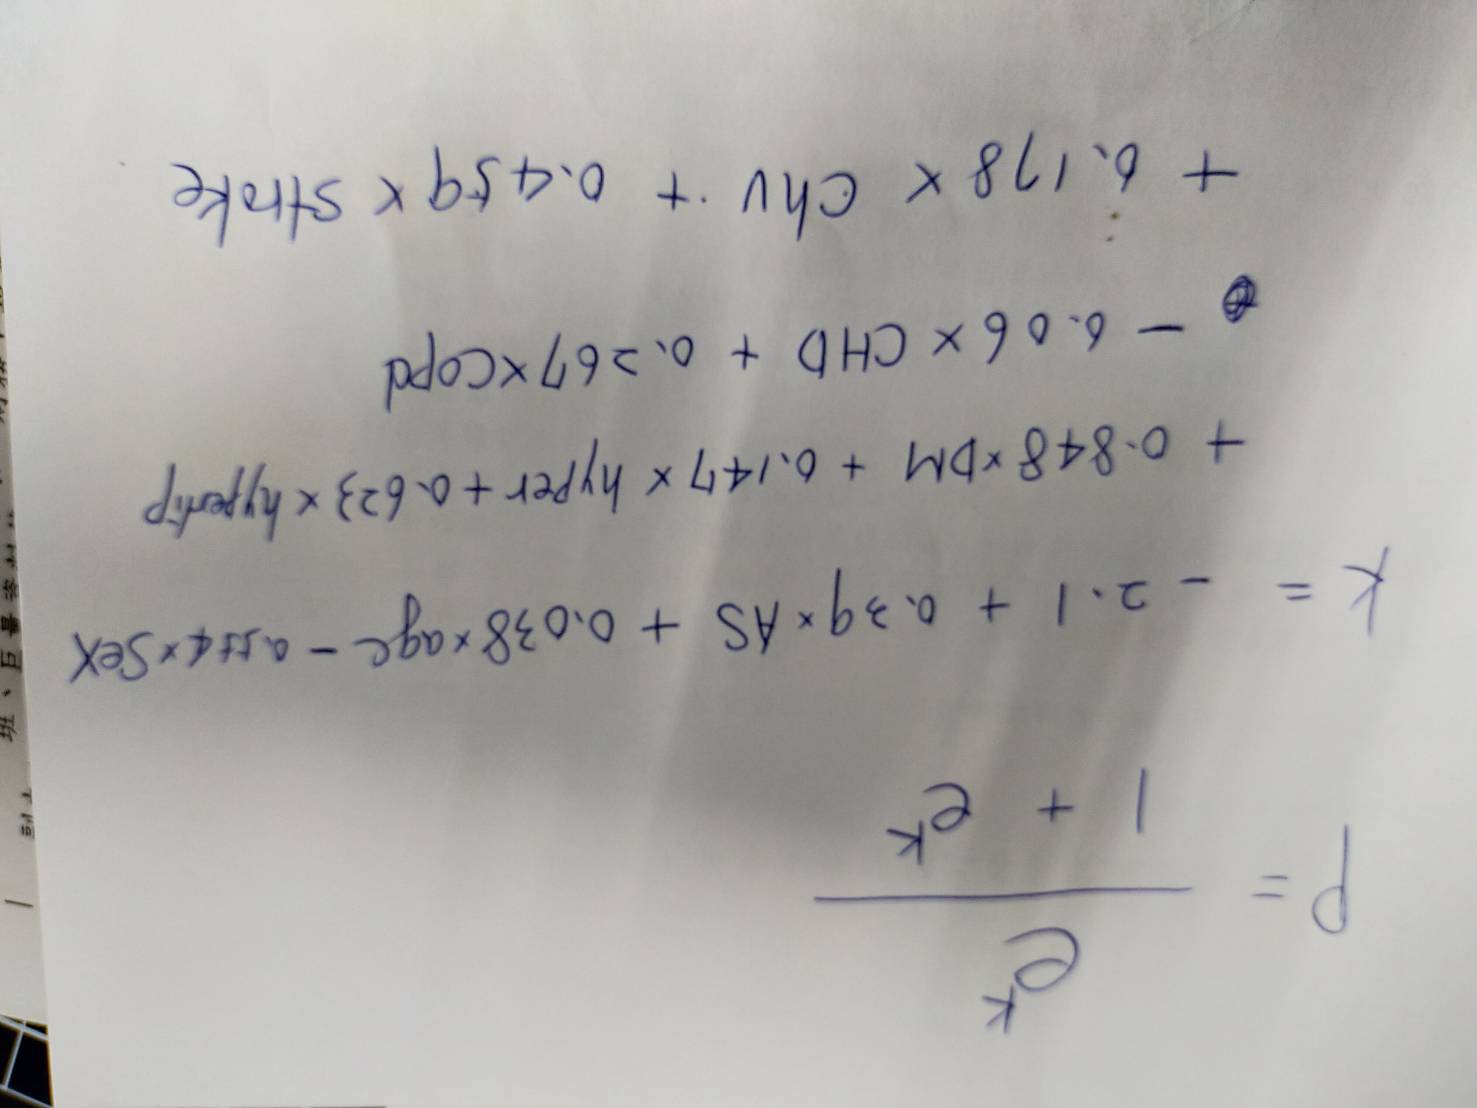 P = e^k / 1 + e^k
k = - 2.1 + 0.39 × AS + 0.038 × age - 0.554 × Sex
+ 0.848 × DM + 0.147 × hyper + 0.623 × hyperlip
- 0.06 × CHD + 0.267 × copd
+ 0.178 × chv + 0.459 × stroke